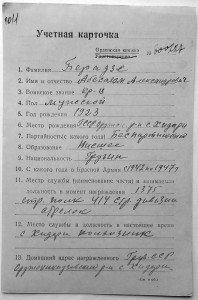 Учетная карточка
Орденская книжка №
1. Фамилия Беридзе
2. Имя и отчество Абесалом Александрович
3. Воинское звание кр-ц
4. Пол Мужской
5. Год рождения 1923
6. Место рождения с Хидари
7. Партийность Беспартийный
8. Образование Низшее
9. Национальность Грузин
10. С какого года в Красной Армии
11. Место службы (наименование части) и занимаемая
должность в момент награждения 1375
стр. полк 414 стр дивизии
стрелок
12. Место службы и должность в настоящее время
с Хидари колхозник
13. Домашний адрес награжденного Груз.ССР
Орджоникидзевский р-н с Хидари